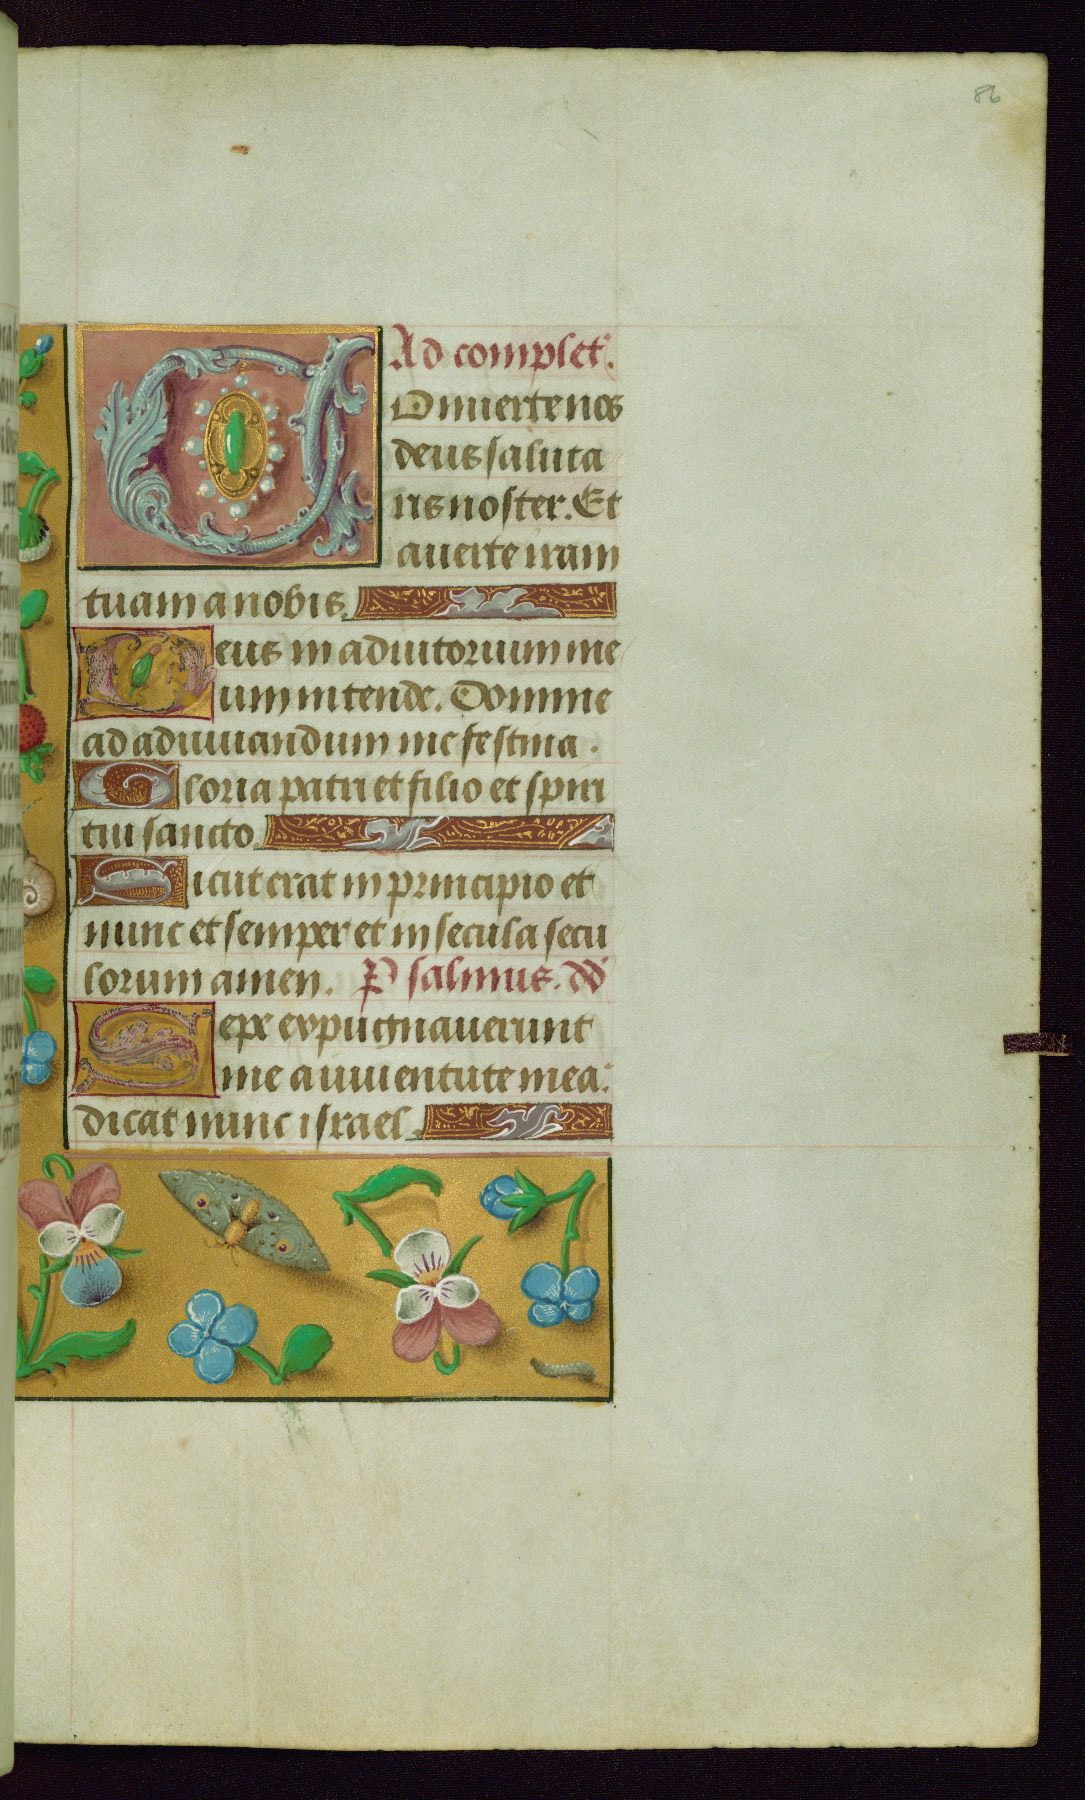 86
Ad complet.
COnuerte nos
deus saluta
ris noster. Et
auerte iram
tuam a nobis.
Deus in adiutorium me
um intende. Domine
ad adiuuandum me festina.
Gloria patri et filio et spiri
tui sancto.
Sicut erat in principio et
nunc et semper et in secula secu
lorum amen. Psalmus. dd
Sepe expugnauerunt
me a iuuentute mea:
dicat nunc israel.